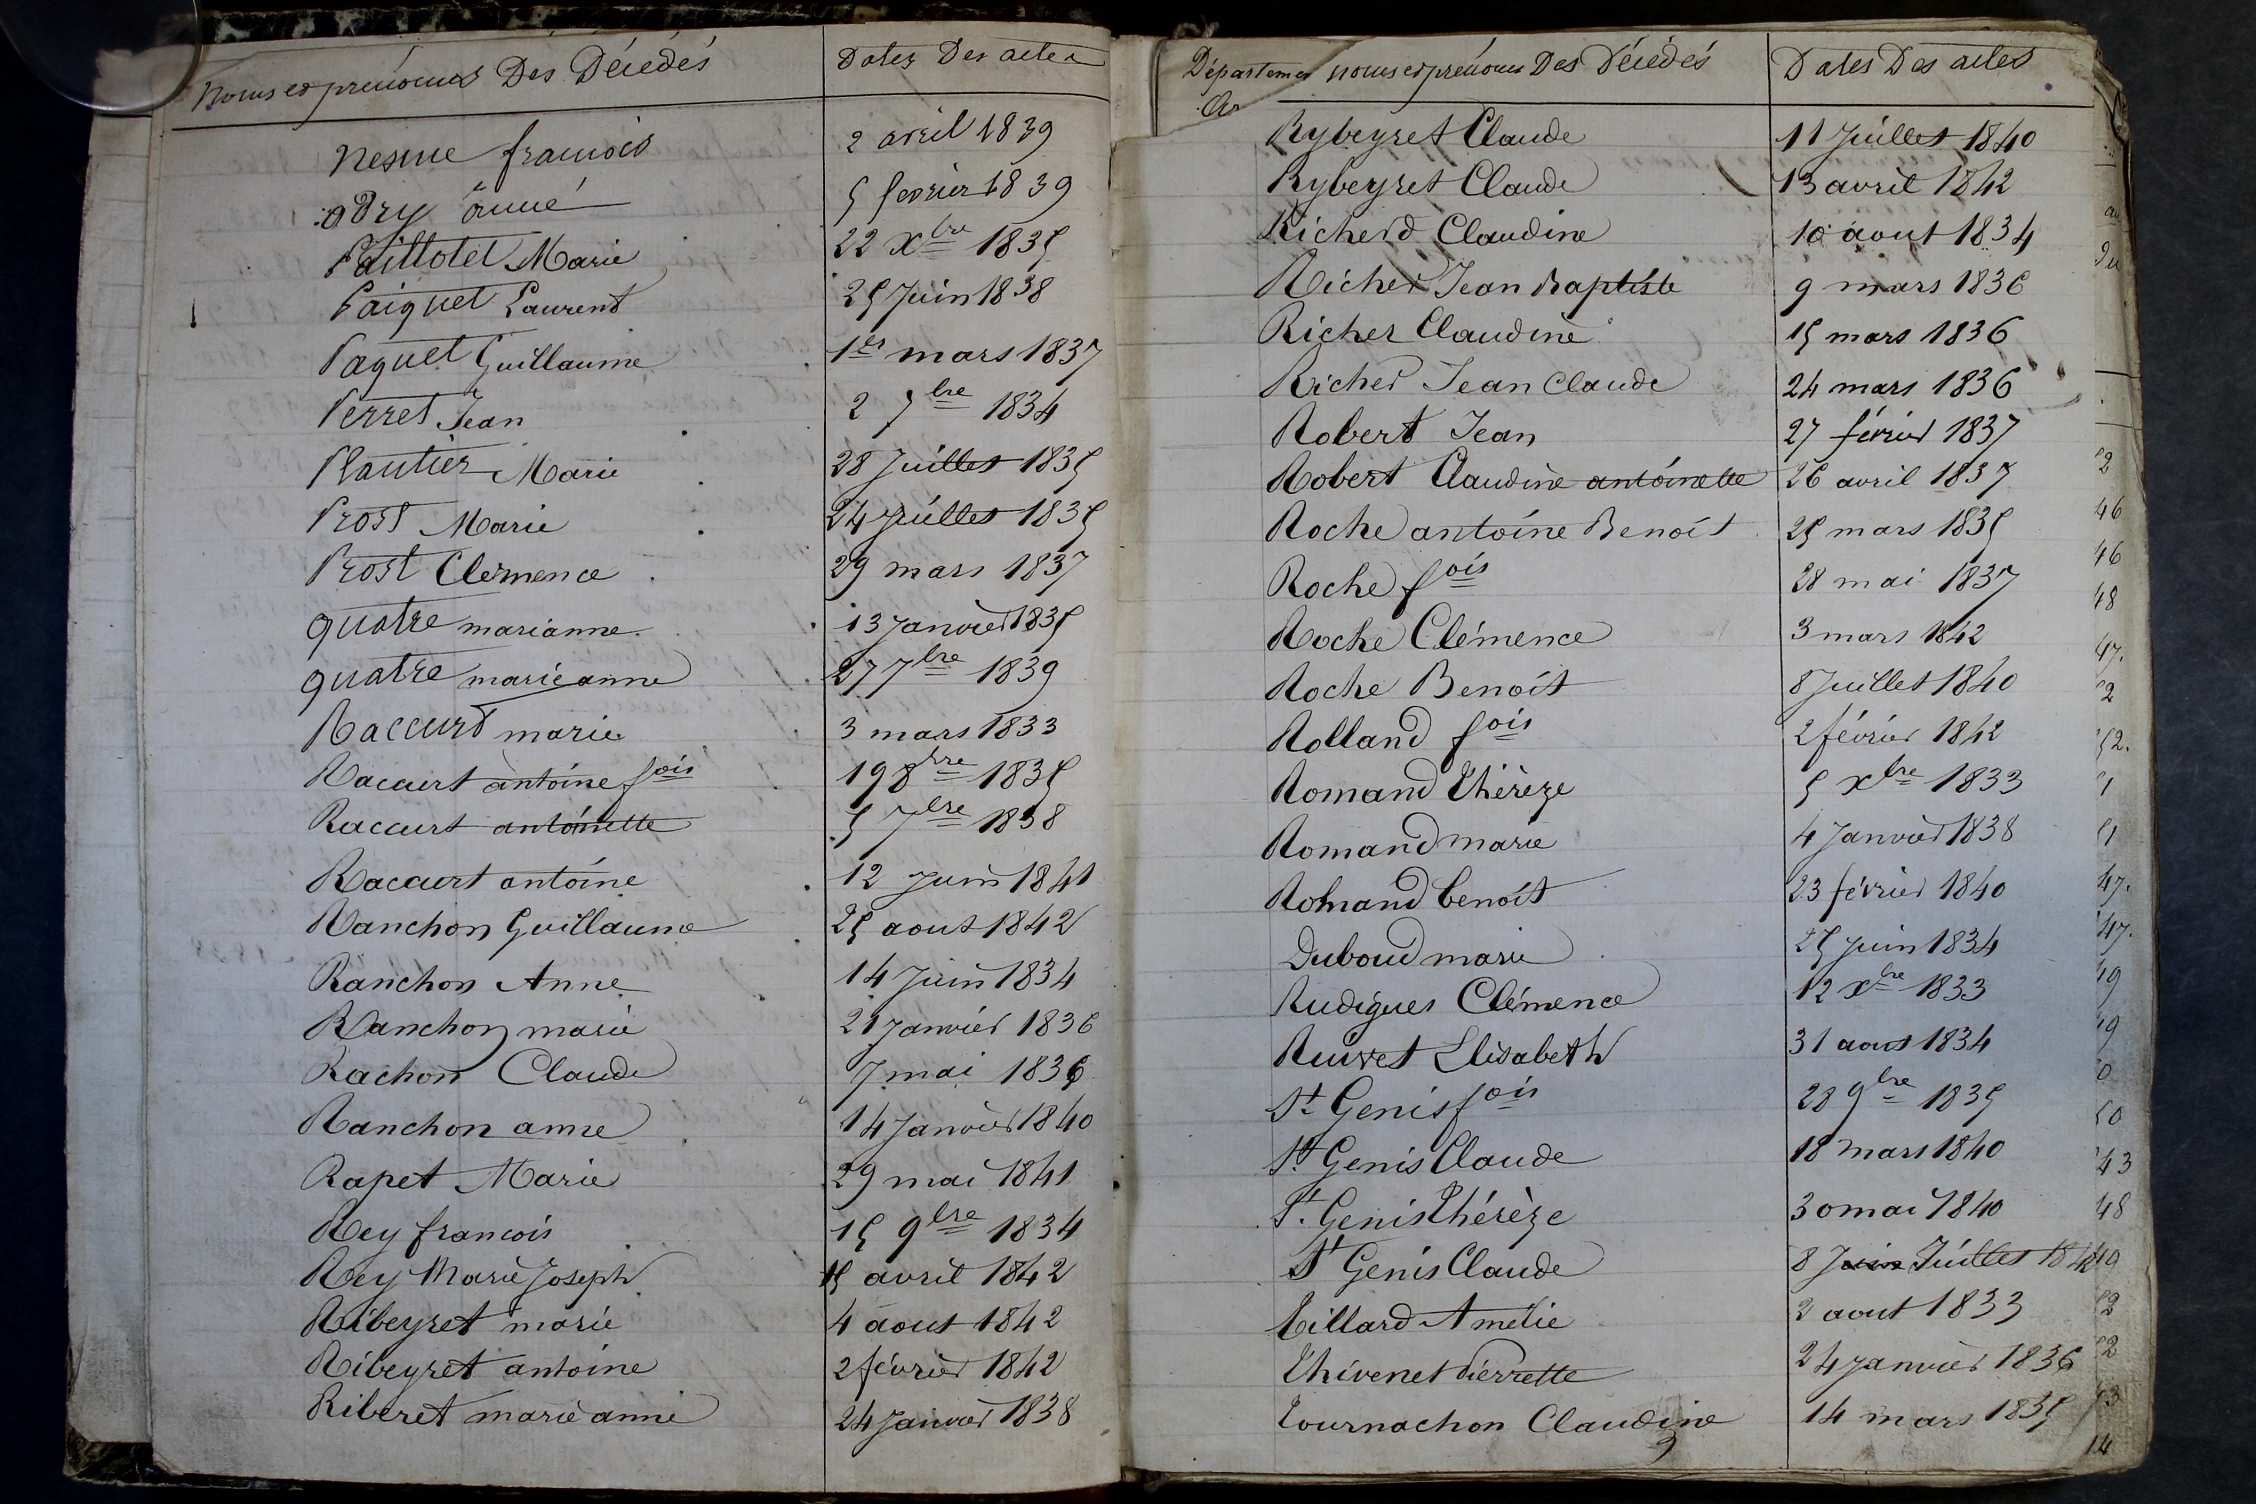 Noms et prénoms Des Décédés
Dates Des actes
nesme francois
2 avril 1839
odry anne
5 fevrier 1839
Paillotet Marie
22 Xbre 1835
Paiquet Laurent
25 Juin 1838
Paquet Guillaume
1er mars 1837
Perret Jean
2 7bre 1834
Plantier Marie
28 Juillet 1835
Prost Marie
24 Juillet 1835
Prost Clemence
29 mars 1837
quatre marianne
13 Janvier 1835
quatre marieanne
27 7bre 1839
Raccurt marie
3 mars 1833
Raccurt antoine fois
19 8bre 1835
Raccurt antoinette
5 7bre 1838
Raccurt antoine
12 Juin 1841
Ranchon Guillaume
25 aout 1842
Ranchon Anne
14 Juin 1834
Ranchon marie
21 Janvier 1836
Rachon Claude
7 mai 1836
Ranchon anne
14 Janvier 1840
Rapet Marie
29 mai 1841
Rey francois
15 9bre 1834
Rey Marie Joseph
15 avril 1842
Ribeyret marie
4 aout 1842
Ribeyret antoine
2 février 1842
Riberet marie anne
24 Janvier 1838
Départemen
Ar
noms et prénoms Des Décédés
Dates Des actes
Rybeyret Claude
11 Juillet 1840
Rybeyret Claude
13 avril 1842
Richerd Claudine
10 aout 1834
Richer Jean Baptiste
9 mars 1836
Richer Claudine
15 mars 1836
Richer Jean Claude
24 mars 1836
Robert Jean
27 février 1837
Robert Claudine antoinette
26 avril 1837
Roche antoine Benoit
25 mars 1835
Roche fois
28 mai 1837
Roche Clémence
3 mars 1842
Roche Benoit
8 Juillet 1840
Rolland fois
2 février 1842
Romand Thérèze
5 Xbre 1833
Romand marie
4 Janvier 1838
Romand benoit
23 février 1840
Duboud marie
25 Juin 1834
Rudigues Clémence
12 Xbre 1833
Ruivet Elisabeth
31 aout 1834
St Genis fois
28 9bre 1835
St Genis Claude
18 mars 1840
St Genis Thérèze
30 mai 1840
St Genis Claude
8 Juin Juillet 1842
tillard Amélie
2 aout 1833
Thivenet Pierrette
24 Janvier 1836
Tournachon Claudine
14 mars 1835